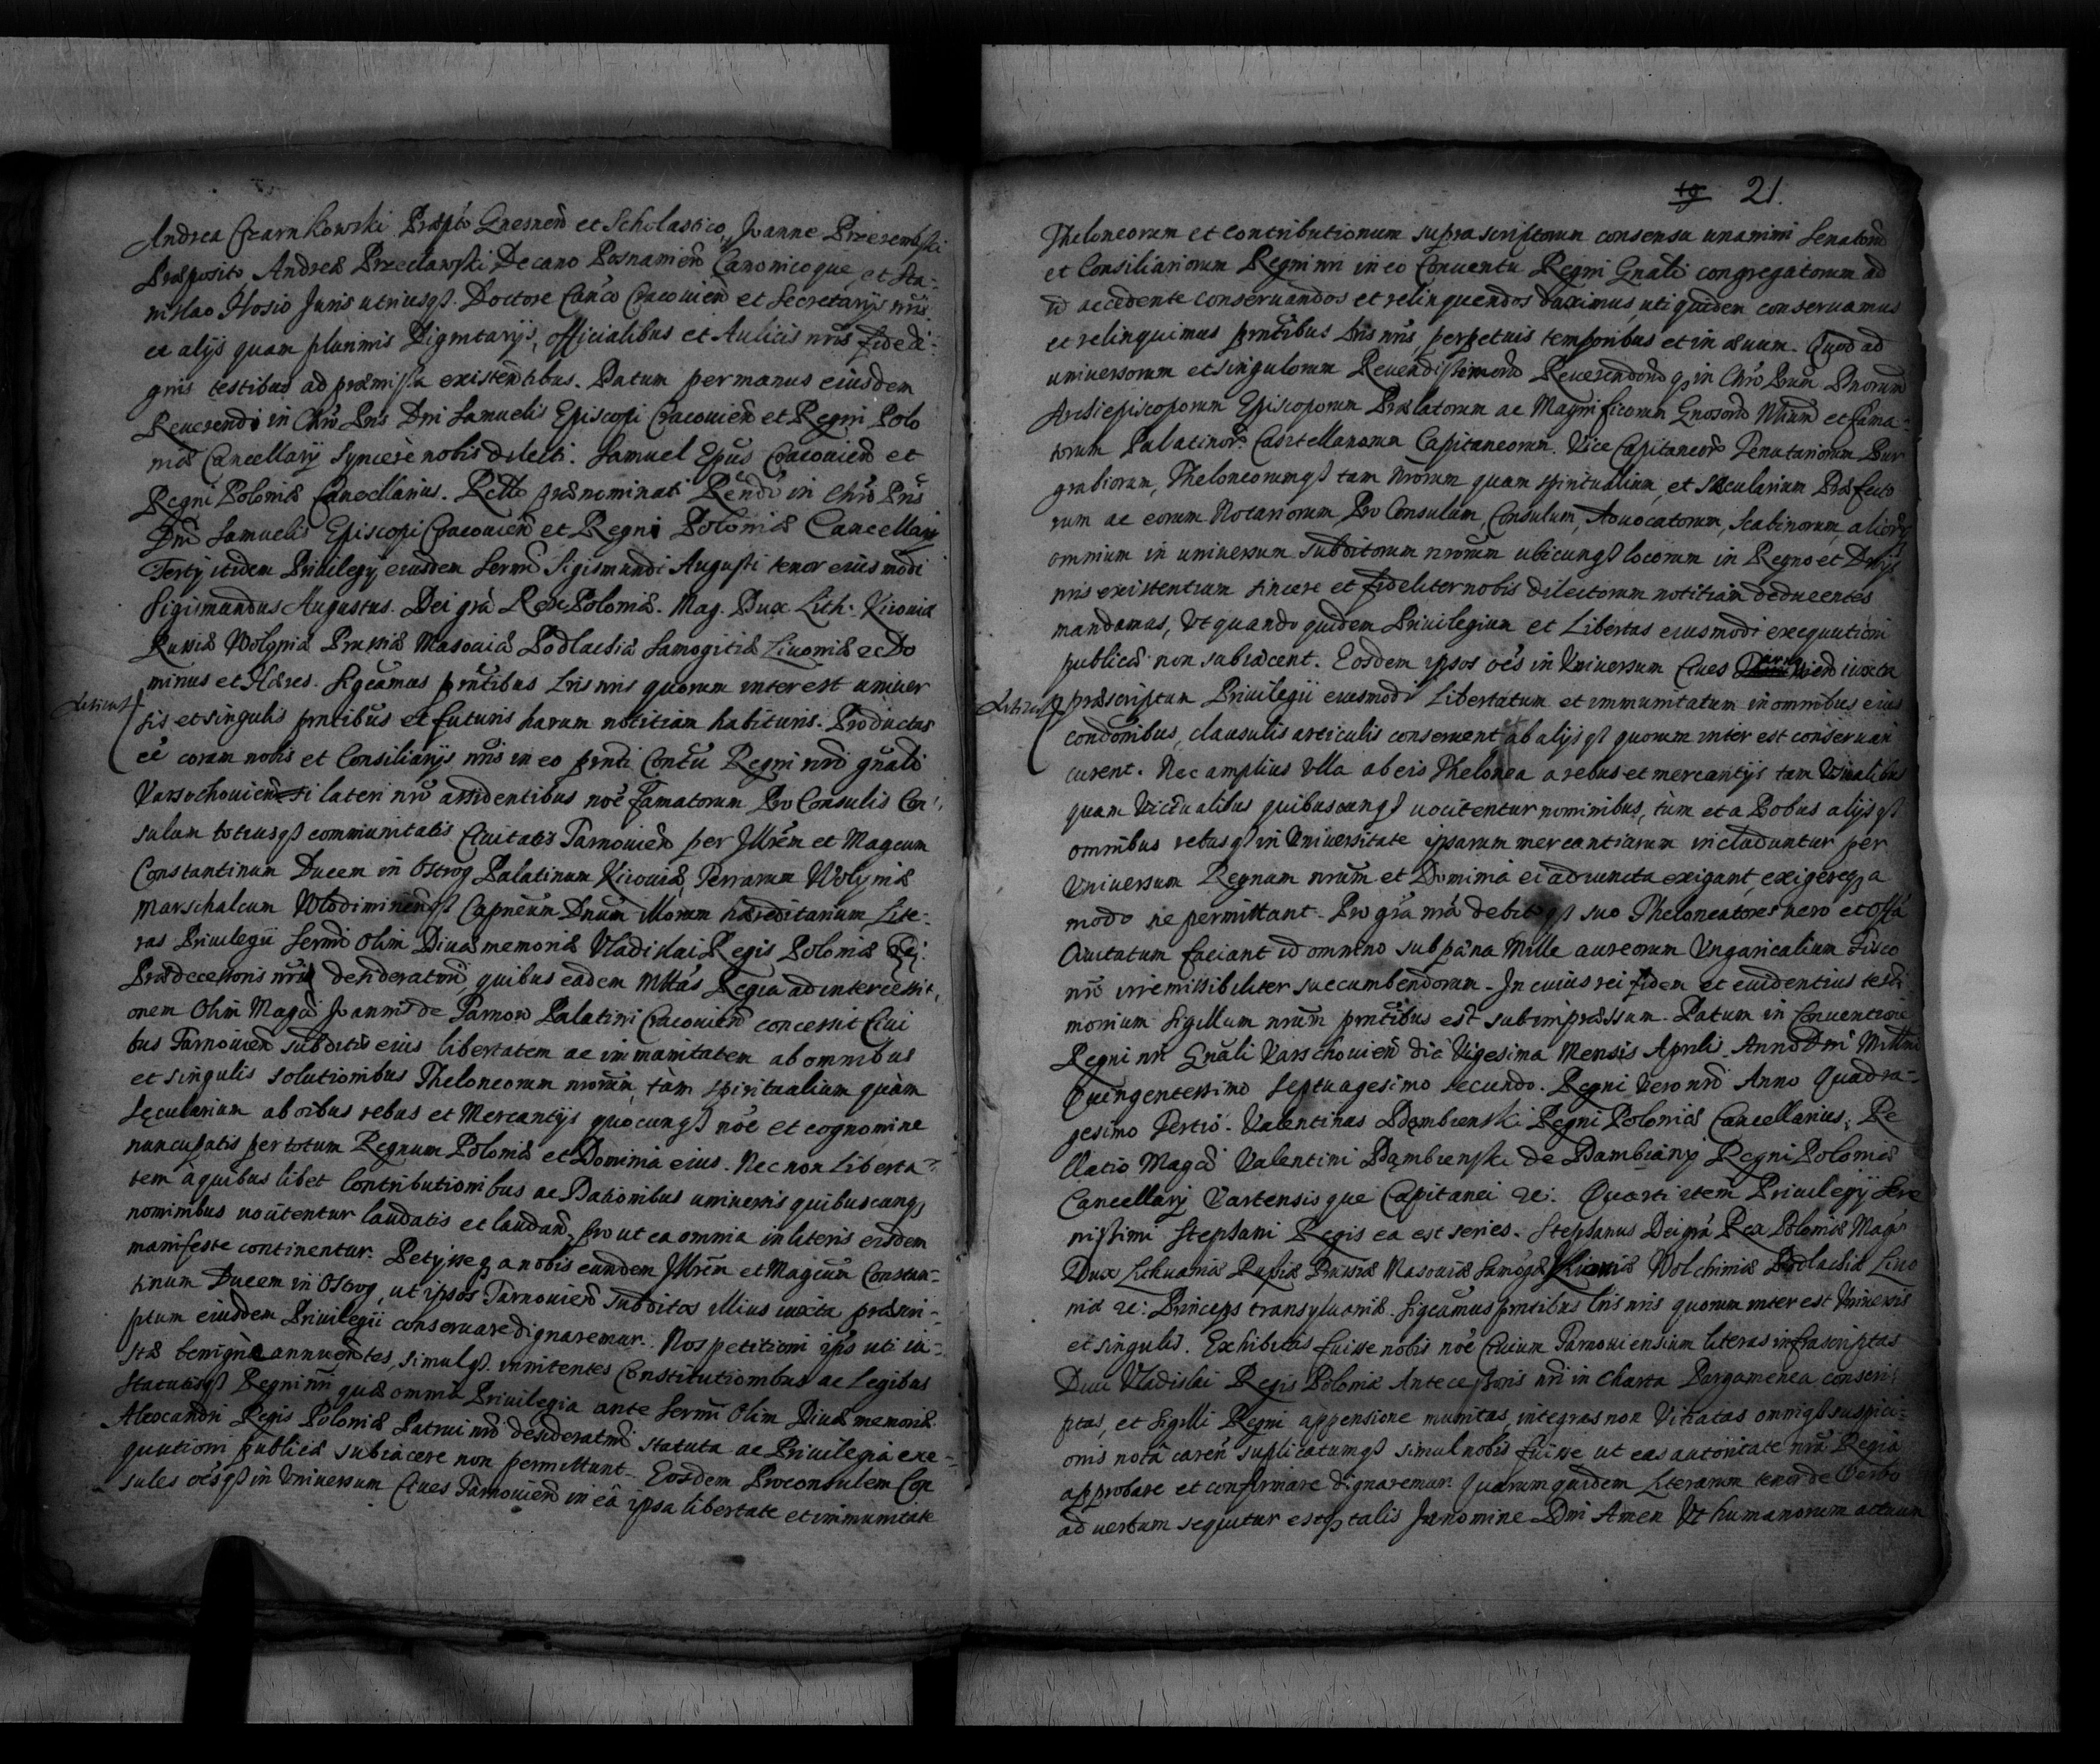 Andrea Czarnkowski Præpto Gnesnen et Scholastico, Joanne Przerembski
Præposito Andreæ Przeclawski Decano Posnanien Canonicoque, et Sta-
nislao Hosio Juris utriusqȝ. Doctore Canco Cracouien et Secretarijs nris
et alijs quam plurimis Dignitarijs, officialibus et Aulicis nris fide di-
gnis testibus ad præmissa existentibus. Datum per manus eiusdem
Reuerendi in Chro Pris Dni Samuelis Episcopi Cracouien et Regni Polo
niæ Cancellarij syncere nobis dilecti. Samuel Epus Cracouien et
Regni Poloniæ Cancellarius. Rello prænominati Rendi in Chro Pris
Dni Samuelis Episcopi Cracouien et Regni Poloniæ Cancellarij
Tertij itidem Priuilegij eiusdem Sermi Sigismundi Augusti tenor eiusmodi
Sigismundus Augustus. Dei gra Rex Poloniæ. Mag. Dux Lith. Kiouiæ
Russiæ Wolyniæ Prussiæ Masouiæ Podlachiæ Samogitiæ Liuoniæ ec Do
minus et Hæres. Sigcamus prntibus Lris nris quorum interest uniuer
sis et singulis prntibus et futuris harum notitiam habituris. Productas
eê coram nobis et Consiliarijs nris in eo prnti Contu Regni nri gnali
Varsochouien lateri nro assidentibus noe Famatorum Pro Consulis Con-
sulum totiusqȝ communitatis Ciuitatis Tarnouien per Jllrem et Magcum
Constantinum Ducem in Ostrog Palatinum Kiouiæ, Terrarum Wolyniæ
Marschalcum Wlodimiriensqȝ Capneum Dnum illorum hæreditarium Lite-
ras Priuilegii Sermi Olim Diuæ memoriæ Vladislai Regis Poloniæ
Prædecessoris nri desideratmi, quibus eadem Mttas Regia ad intercessi-
onem Olim Magci Joannis de Tarnow Palatini Cracouien concessit Ciui
bus Tarnouien subditis eius libertatem ac immunitatem ab omnibus
et singulis solutionibus Theloneorum nrorum, tàm spiritualium quàm
secularium ab oibus rebus et Mercantijs quocunqȝ noe et cognomine
nuncupatis per totum Regnum Poloniæ et Dominia eius. Nec non Liberta-
tem à quibus libet Contributionibus ac Dationibus uniuersis quibuscunqȝ
nominibus uocitentur laudatis et laudan, pro ut ea omnia in literis eisdem
manifeste continentur. Petijsseqȝ a nobis eundem Jllrem et Magcum Constan-
tinum Ducem in Ostrog, ut ipsos Tarnouien subditos illius iuxta præscri-
ptum eiusdem Priuilegii conseruare dignaremur. Nos petitioni ipsi uti iu-
stæ benignè annuentes, simulqȝ. innitentes Constitutionibus ac Legibus
Statutisqȝ Regni nri quæ omnia Priuilegia ante Sermi Olim Diuæ memoriæ
Alexandri Regis Poloniæ Patrui nri desideratmi statuta ac Priuilegia exe-
quutioni publicæ subiacere non permittunt. Eosdem Proconsulem Con
sules oesqȝ in Uniuersum Ciues Tarnouien in eâ ipsa libertate et immunitate
21.
Theloneorum et Contributionum suprascriptorum consensu unanimi Senatorum
et Consiliariorum Regni nri in eo Conuentu Regni Gnali congregatorum ad
id accedente conseruandos et relinquendos duximus, uti quidem conseruamus
et relinquimus prntibus Lris nris, perpetuis temporibus et in æuum. Quod ad
uniuersorum et singulorum Reuendissimorum Reuerendorum qȝ in Chro Prum Dnorum
Archiepiscoporum Episcoporum Prælatorum ac Magnificorum Gnosorum Nbium et Fama-
torum Palatinor. Castellanorum Capitaneorum. Vice Capitaneor Tenutariorum Bur
grabiorum, Theloneorumqȝ tam nrorum quam spiritualium, et sæcularium Præfecto
rum ac eorum Notariorum Pro Consulum, Consulum, Aduocatorum, Scabinorum, aliorqȝ
omnium in uniuersum subditorum nrorum ubicunqȝ locorum in Regno et Dnijs
nris existentium sincere et fideliter nobis dilectorum notitiam deducentes
mandamus, Ut quando quidem Priuilegium et Libertas eiusmodi exequutioni
publicæ non subiacent. Eosdem ipsos oes in Uniuersum Ciues iuxta
præscriptum Priuilegii eiusmodi Libertatum et immunitatum in omnibus eius
condonibus, clausulis articulis conseruent et ab alijsqȝ quorum inter est conseruari
curent. Nec amplius ulla ab eis Thelonea a rebus et mercantijs tam Usualibus
quam Victualibus quibuscunqȝ uocitentur nominibus, tùm et a Bobus alijsqȝ
omnibus rebusqȝ in Uniuersitate ipsarum mercantiarum includuntur per
Uniuersum Regnum nrum et Dominia ei adiuncta exigant, exigereqȝ a
modo ne permittant. Pro gra nra debitoqȝ suo Theloneatores uero et Offa
Ciuitatum faciant id omnino sub pæna Mille aureorum Ungaricalium Fisco
nro irremissibiliter succumbendorum. In cuius rei fidem et euidentius testi
monium Sigillum nrum prntibus est subimpressum. Datum in Conuentione
Regni nri Gnali Varschouien die Vigesima Mensis Aprilis Anno Dni Millmo
Quingentessimo Septuagesimo secundo. Regni uero nri Anno Quadra-
gesimo Tertio. Valentinus Dębienski Regni Poloniæ Cancellarius; Re
llatio Magci Valentini Dąmbienski de Dambiany Regni Poloniæ
Cancellarij Vartensis que Capitanei ec: Quarti item Priuilegij Sere
nissimi Stephani Regis ea est series. Stephanus Dei gra Rex Poloniæ Mags
Dux Lithuaniæ Russiæ Prussiæ Masouiæ Samogæ Kiouiæ Wolchiniæ Podlachiæ Liuo
niæ ec: Princeps transyluaniæ. Sigcamus prntibus Lris nris quorum inter est Uniuersis
et singulis. Exhibitas fuisse nobis noe Ciuium Tarnouiensium literas infrascriptas
Diui Vladislai Regis Poloniæ Antecessoris nri in Charta Pargamenea conscri-
ptas, et Sigilli Regni appensione munitas, integras non Vitiatas omniqȝ suspici-
onis notâ caren suplicatumqȝ simul nobis fuisse ut eas autoritate nra Regia
approbare et confirmare dignaremur. Quarum quidem Literarum tenor de Verbo
ad uerbum sequitur estqȝ talis In nomine Dni Amen Ut humanorum actuum